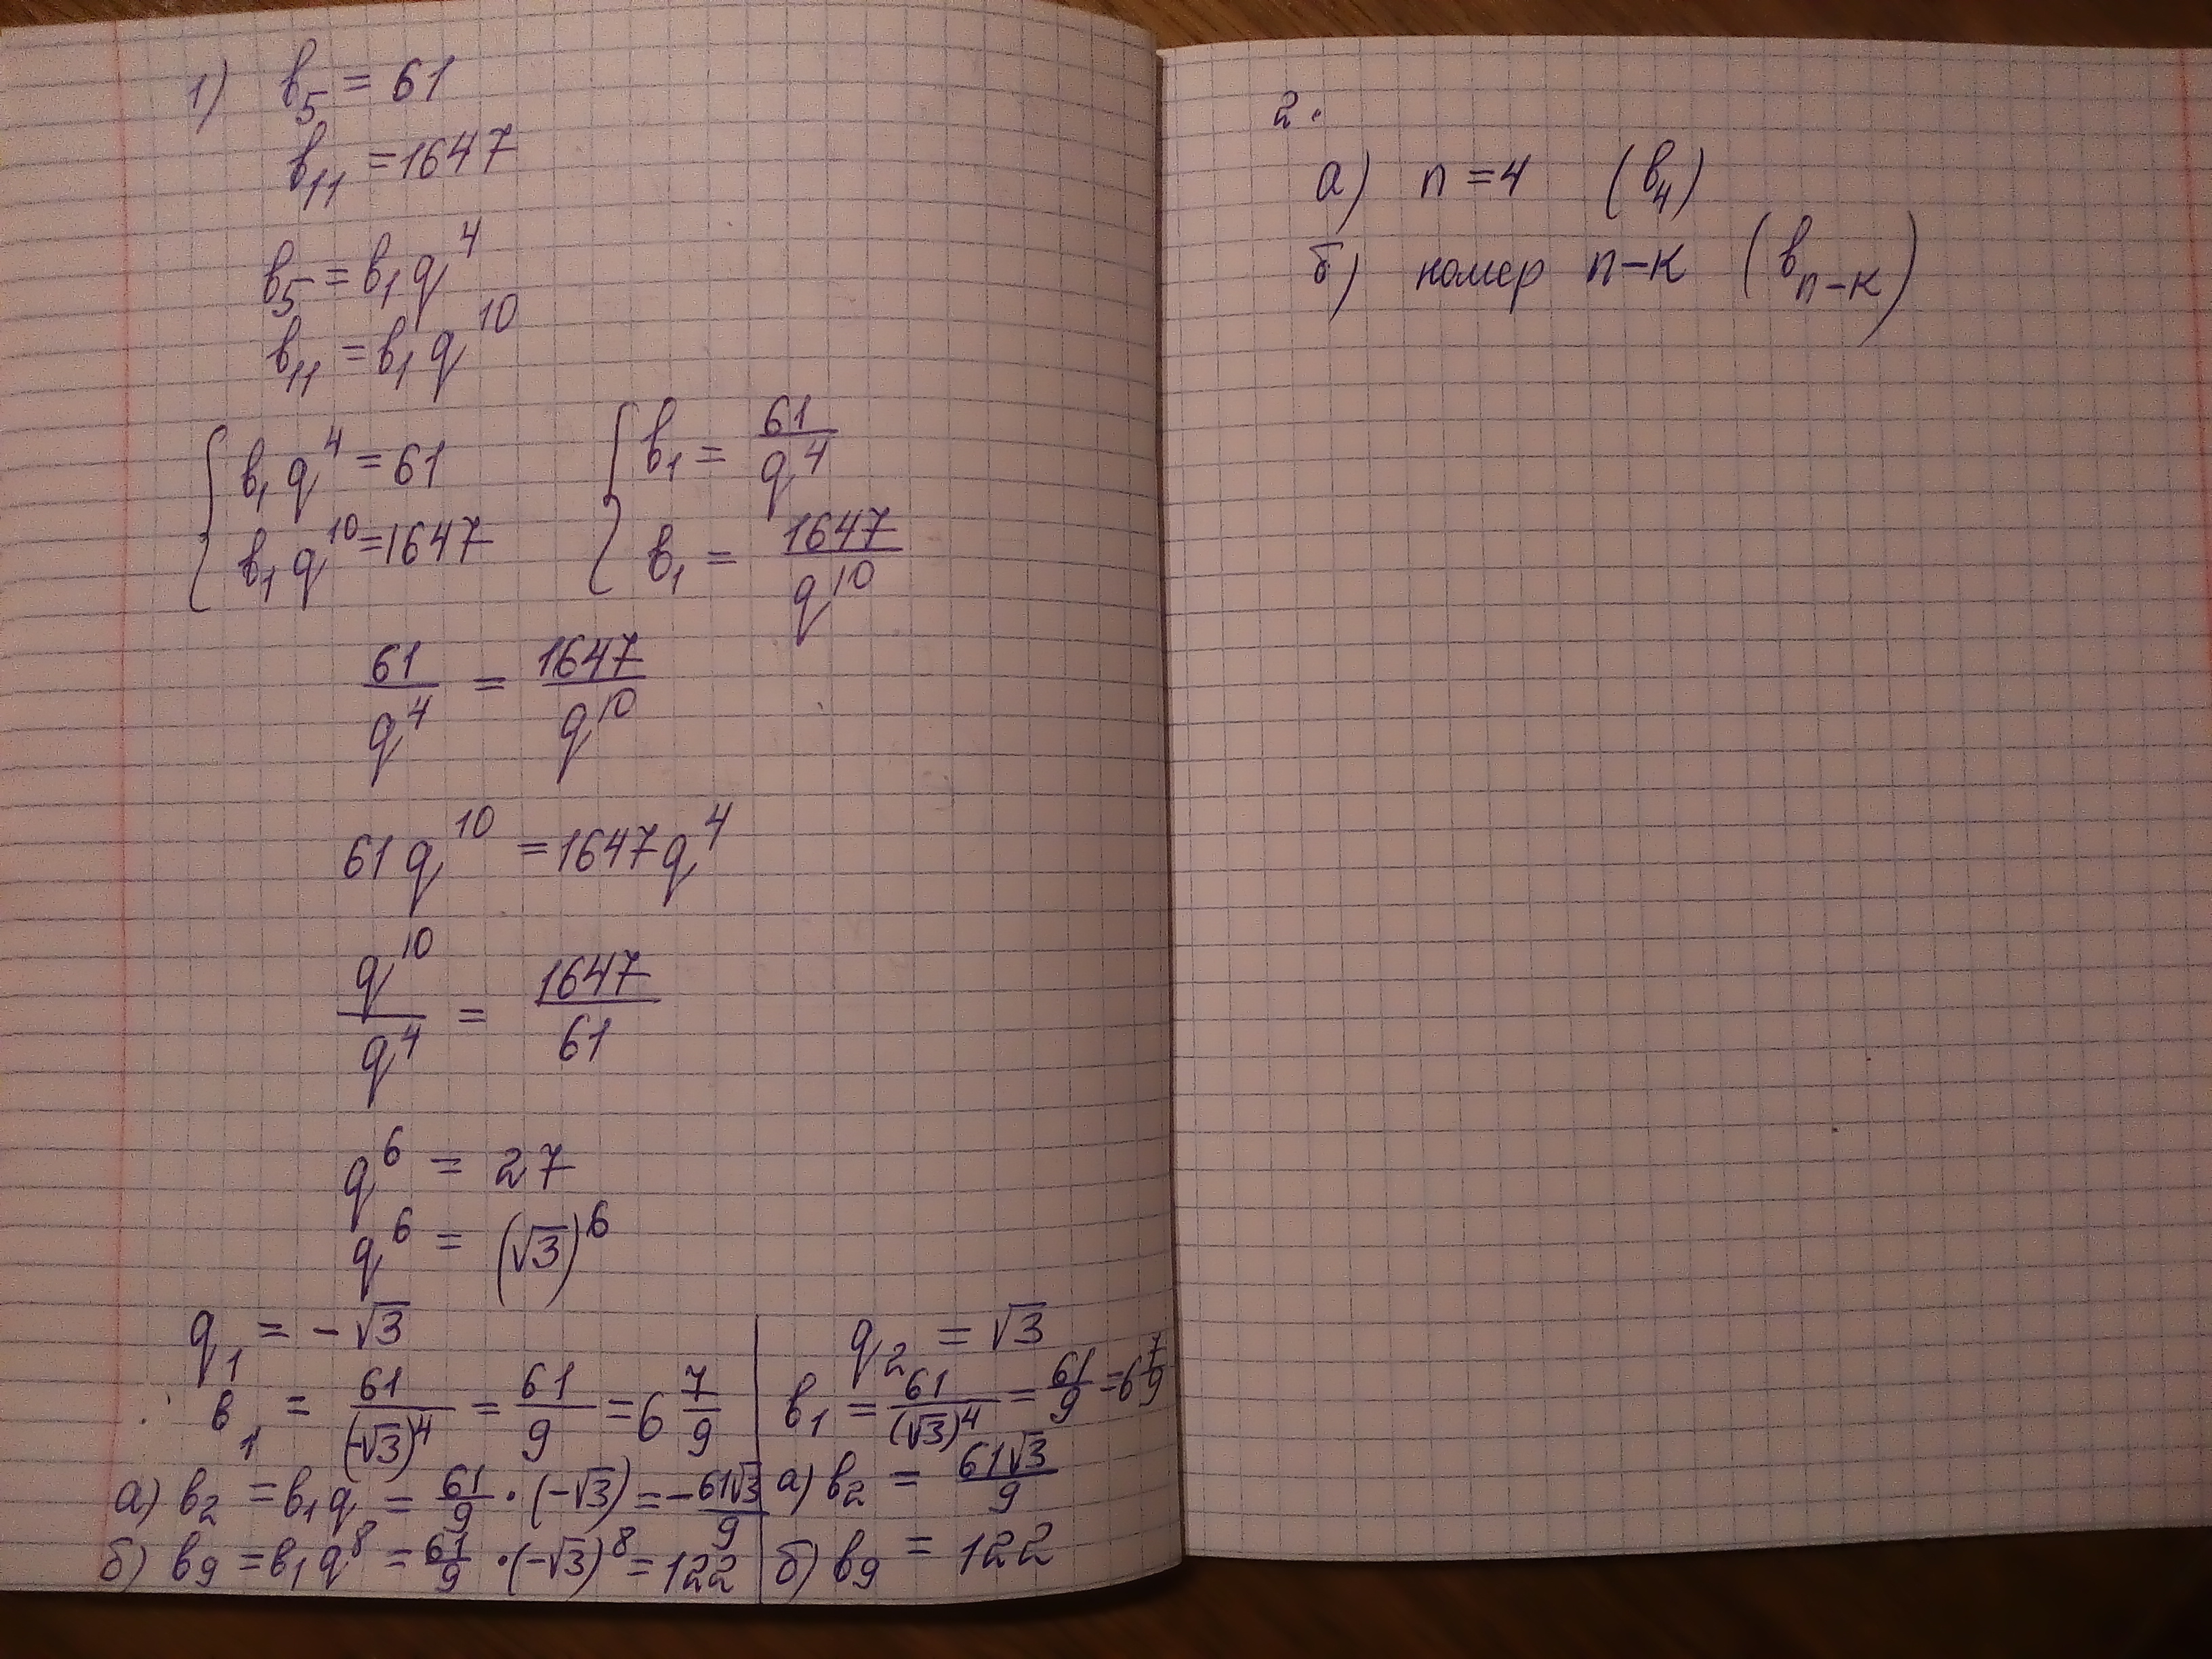 1) b₅ = 61
b₁₁ = 1647
b₅ = b₁q⁴
b₁₁ = b₁q¹⁰
{ b₁q⁴ = 61 { b₁ = 61/q⁴
b₁q¹⁰ = 1647 b₁ = 1647/q¹⁰
61/q⁴ = 1647/q¹⁰
61q¹⁰ = 1647q⁴
q¹⁰/q⁴ = 1647/61
q⁶ = 27
q⁶ = (√3)⁶
q₁ = -√3
b₁ = 61/(-√3)⁴ = 61/9 = 6 7/9
а) b₂ = b₁q = 61/9 · (-√3) = -61√3/9
б) b₉ = b₁q⁸ = 61/9 · (-√3)⁸ = 122
q₂ = √3
b₁ = 61/(√3)⁴ = 61/9 = 6 7/9
а) b₂ = 61√3/9
б) b₉ = 122
2.
а) n = 4 (b₄)
б) номер n-к (bₙ₋ₖ)